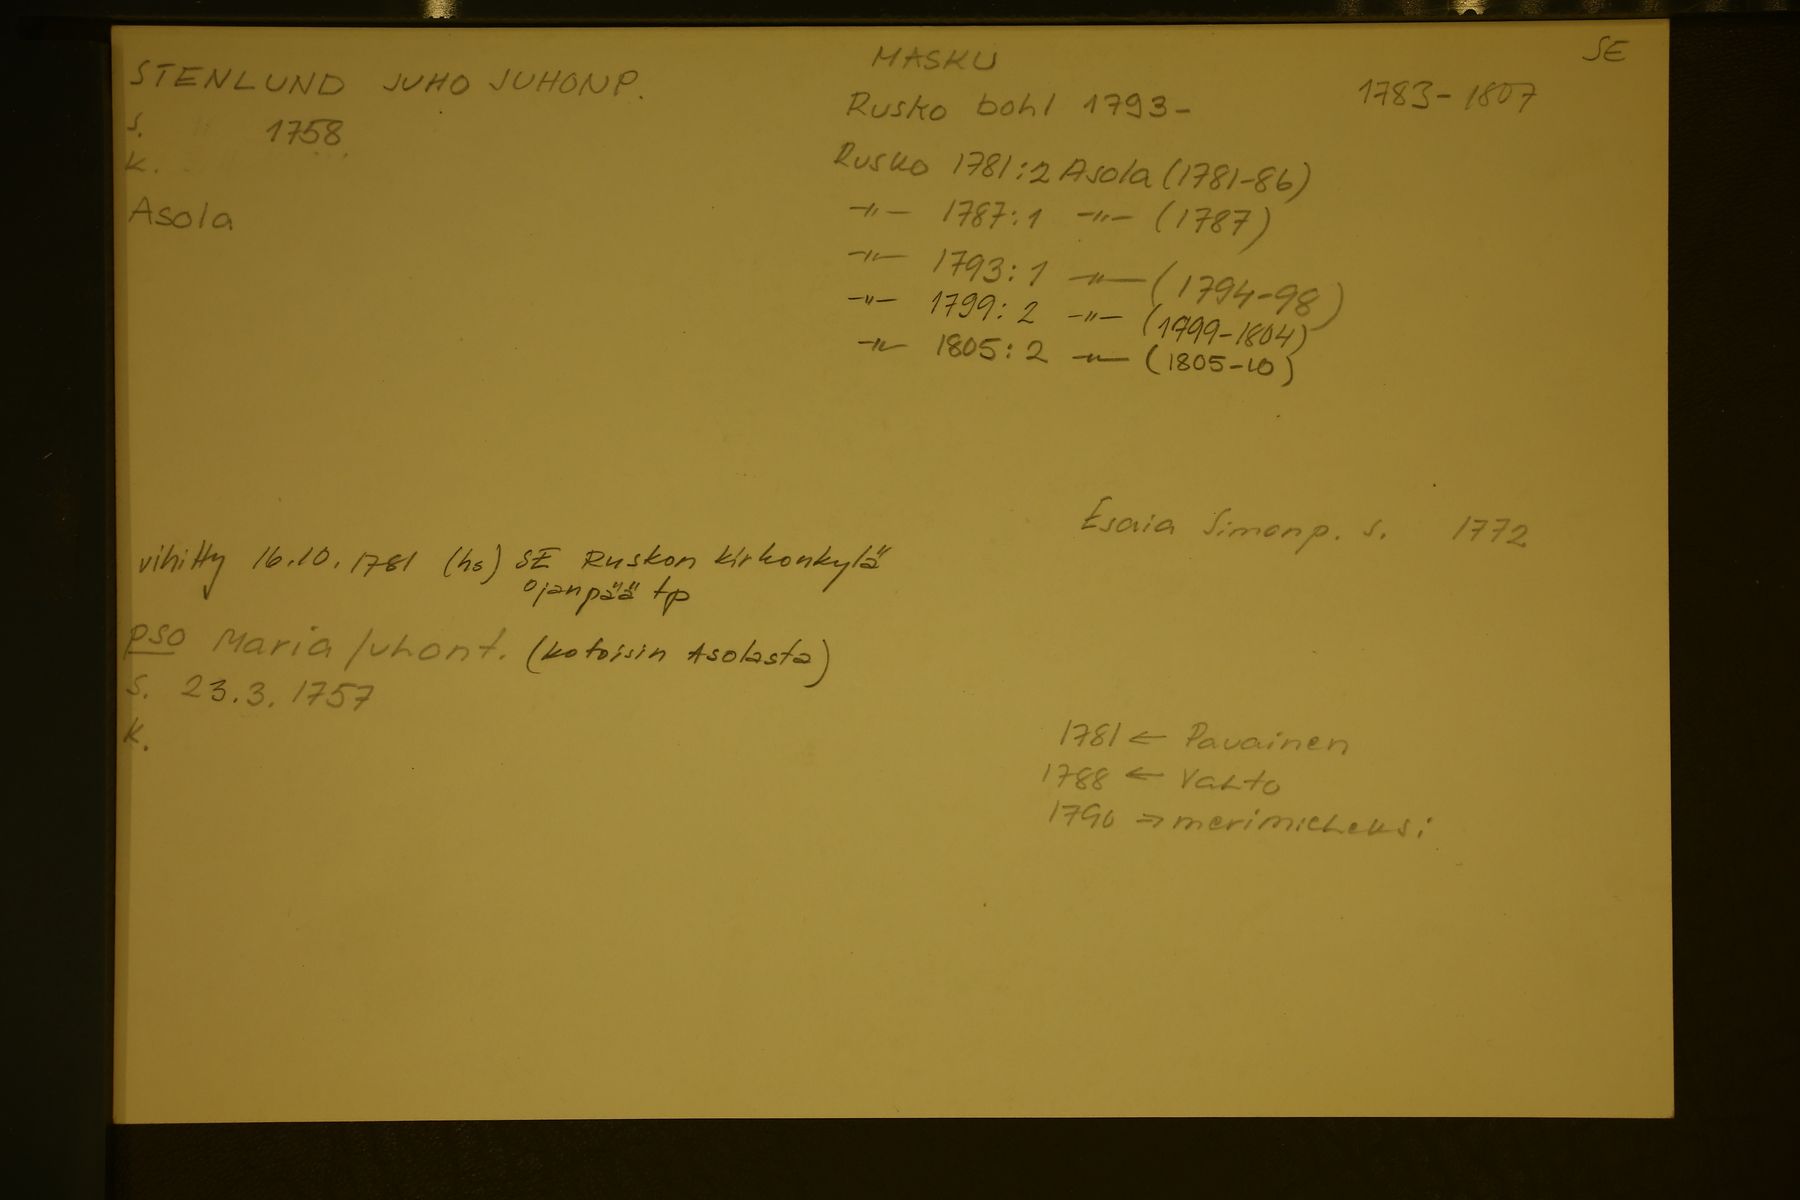 STENLUND JUHO JUHONP.
s. 1758
k.
Asola
MASKU
Rusko bohl 1793-
SE
1783-1807
Rusko 1781:2 Asola (1781-86)
-"- 1787:1 -"- (1787)
-"- 1793:1 -"- (1794-98)
-"- 1799:2 -"- (1799-1804)
-"- 1805:2 -"- (1805-10)
Esaia Simonp. s. 1772
vihitty 16.10.1781 (hs) SE Ruskon kirkonkylä
Ojanpää tp
pso Maria Juhont. (kotoisin Asolasta)
s. 23.3.1757
k.
1781 ← Pavainen
1788 ← Vahto
1790 → merimieheksi